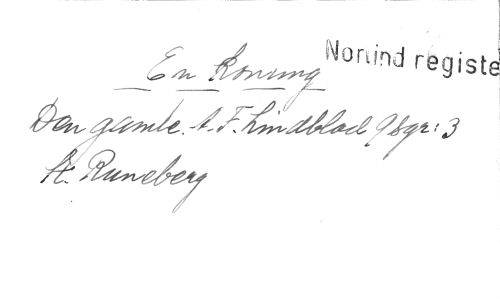 En Konung
Norlind registe
Den gamle. A. F. Lindblad 98gr: 3
H. Runeberg